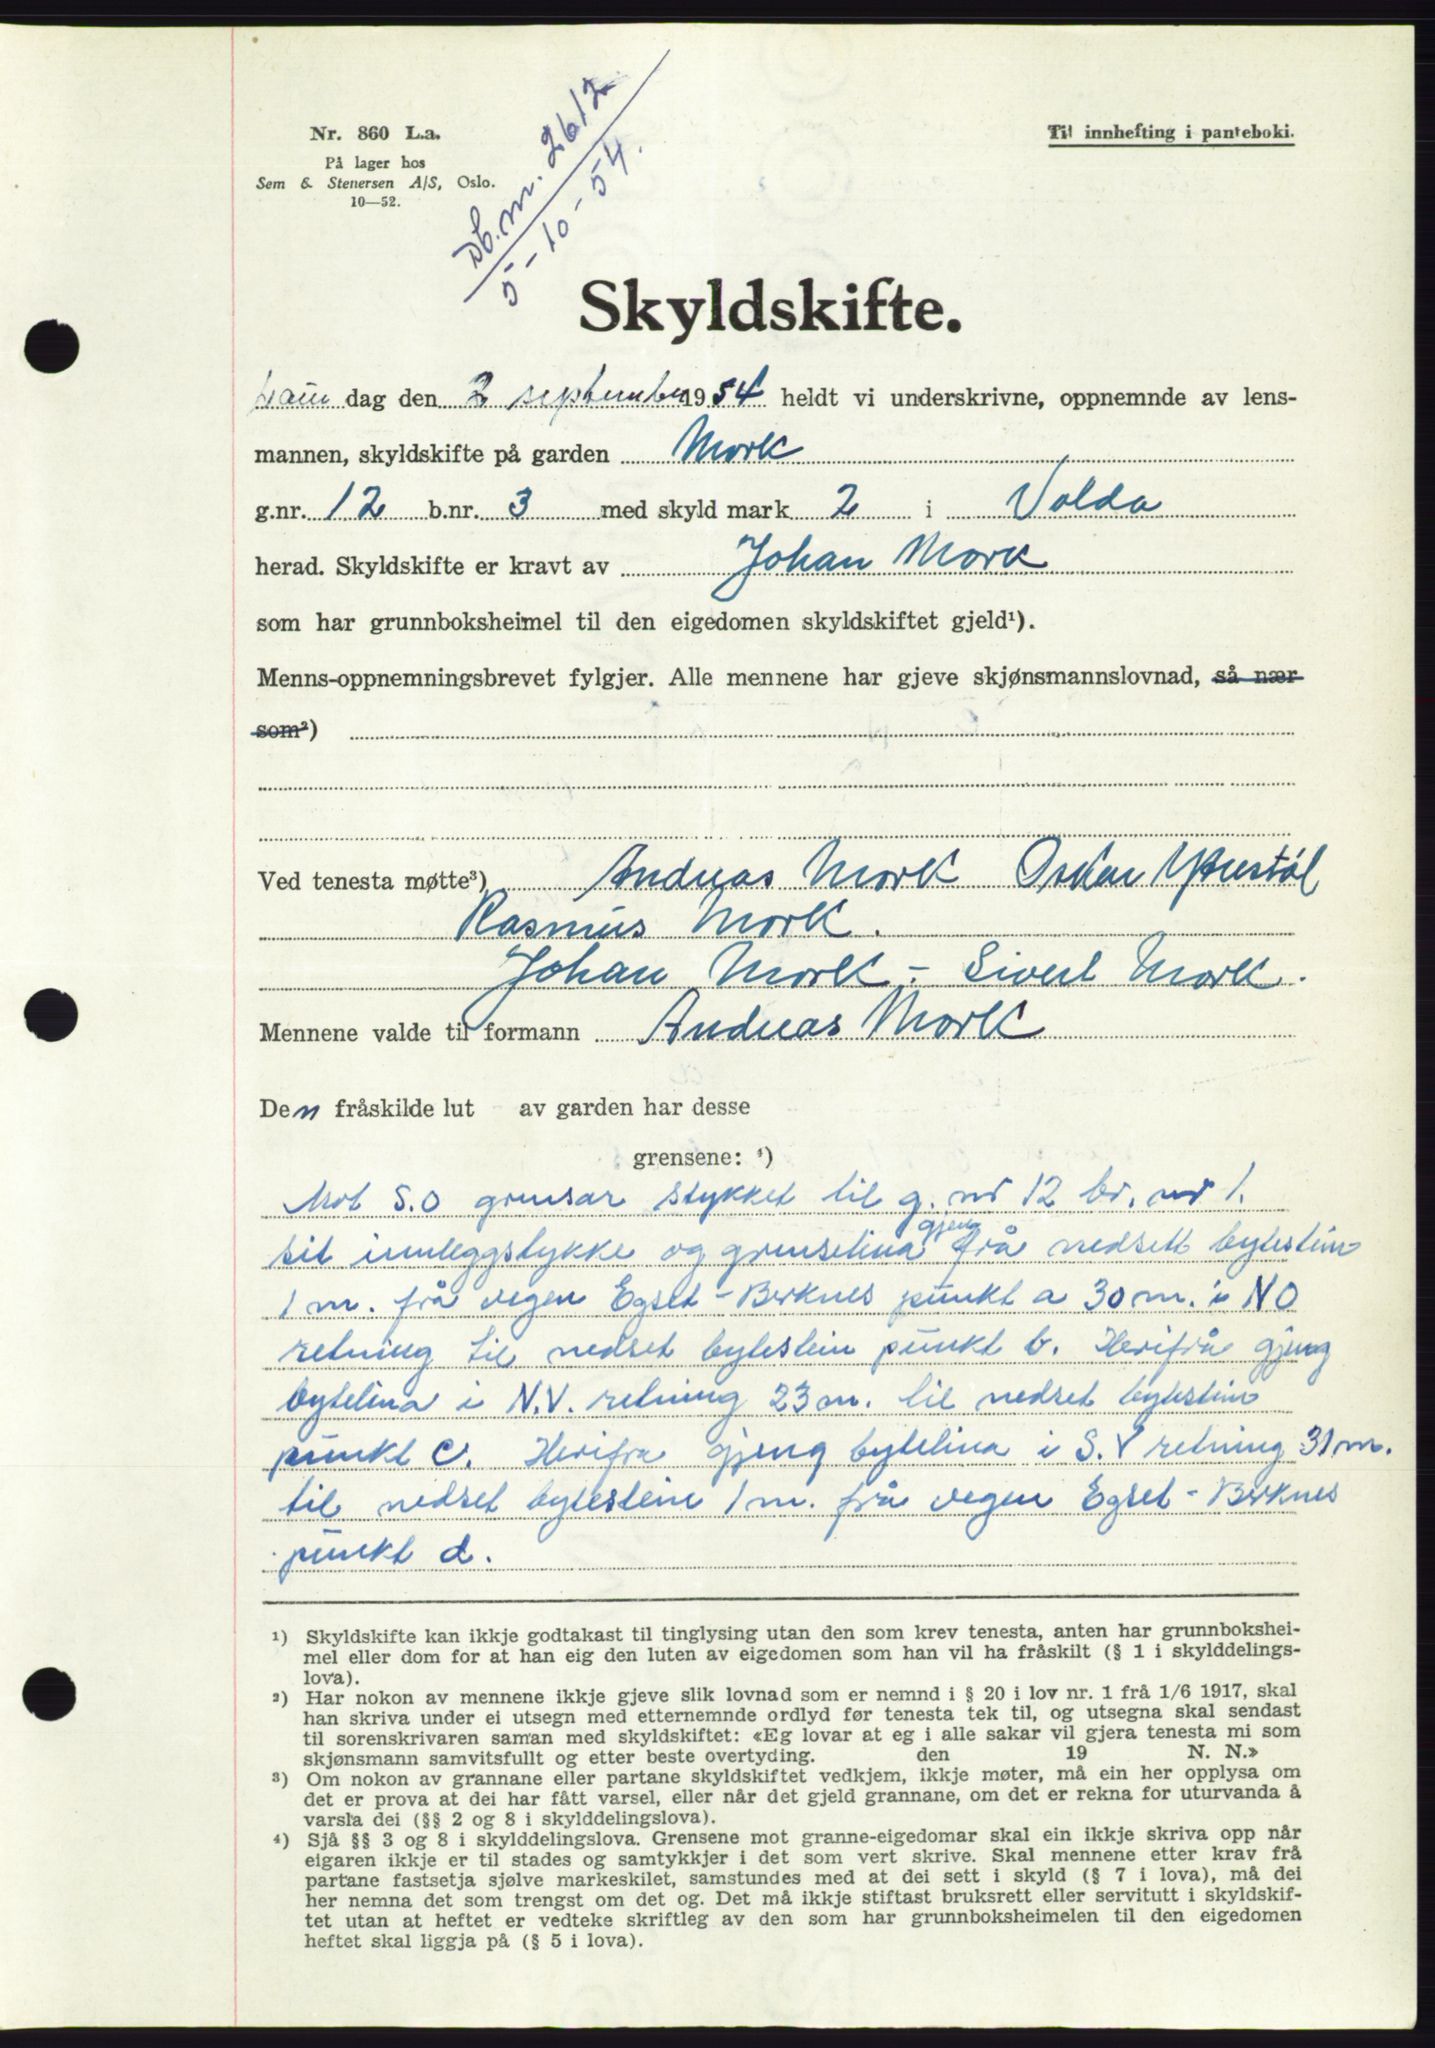 Nr. 860 L.a.
På lager hos
Sem & Stenersen A/S, Oslo.
10—52.
Db. nr. 2612
5-10-54.
Til innhefting i panteboki.
Skyldskifte.
dag den 2 september 1954 heldt vi underskrivne, oppnemnde av lens-
mannen, skyldskifte på garden Mork
g.nr. 12 b.nr. 3 med skyld mark 2 i Volda
herad. Skyldskifte er kravt av Johan Mork
som har grunnboksheimel til den eigedomen skyldskiftet gjeld¹).
Menns-oppnemningsbrevet fylgjer. Alle mennene har gjeve skjønsmannslovnad, så nær
som²)
Ved tenesta møtte³) Andreas Mork Oskar
Rasmus Mork.
Johan Mork - Sivert Mork.
Mennene valde til formann Andreas Mork
Den fråskilde lut av garden har desse
grensene: ⁴)
Mot S.O grensar stykket til g. nr 12 br. nr 1.
sit innleggstykke og grenselina gjeng frå nedsett bytestein
1 m. frå vegen Egset - Berknes punkt a 30 m. i N O
retning til nedset bytestein punkt b. Herifrå gjeng
bytelina i N.V. retning 23 m. til nedset bytestein
punkt C. Herifra gjeng bytelina i S.V retning 31 m.
til nedset bytestein 1 m. frå vegen Egset - Berknes
punkt d.
¹) Skyldskifte kan ikkje godtakast til tinglysing utan den som krev tenesta, anten har grunnbokshei-
mel eller dom for at han eig den luten av eigedomen som han vil ha fråskilt (§ 1 i skylddelings-
lova).
²) Har nokon av mennene ikkje gjeve slik lovnad som er nemnd i § 20 i lov nr. 1 frå 1/6 1917, skal
han skriva under ei utsegn med etternemnde ordlyd før tenesta tek til, og utsegna skal sendast
til sorenskrivaren saman med skyldskiftet: «Eg lovar at eg i alle sakar vil gjera tenesta mi som
skjønsmann samvitsfullt og etter beste overtyding. den 19 N. N.»
³) Om nokon av grannane eller partane skyldskiftet vedkjem, ikkje møter, må ein her opplysa om
det er prova at dei har fått varsel, eller når det gjeld grannane, om det er rekna for uturvanda å
varsla dei (§§ 2 og 8 i skylddelingslova).
⁴) Sjå §§ 3 og 8 i skylddelingslova. Grensene mot granne-eigedomar skal ein ikkje skriva opp når
eigaren ikkje er til stades og samtykkjer i det som vert skrive. Skal mennene etter krav frå
partane fastsetja sjølve markeskilet, samstundes med at dei sett i skyld (§ 7 i lova), må dei
her nemna det som trengst om det og. Det må ikkje stiftast bruksrett eller servitutt i skyldskif-
tet utan at heftet er vedteke skriftleg av den som har grunnboksheimelen til den eigedomen
heftet skal liggja på (§ 5 i lova).